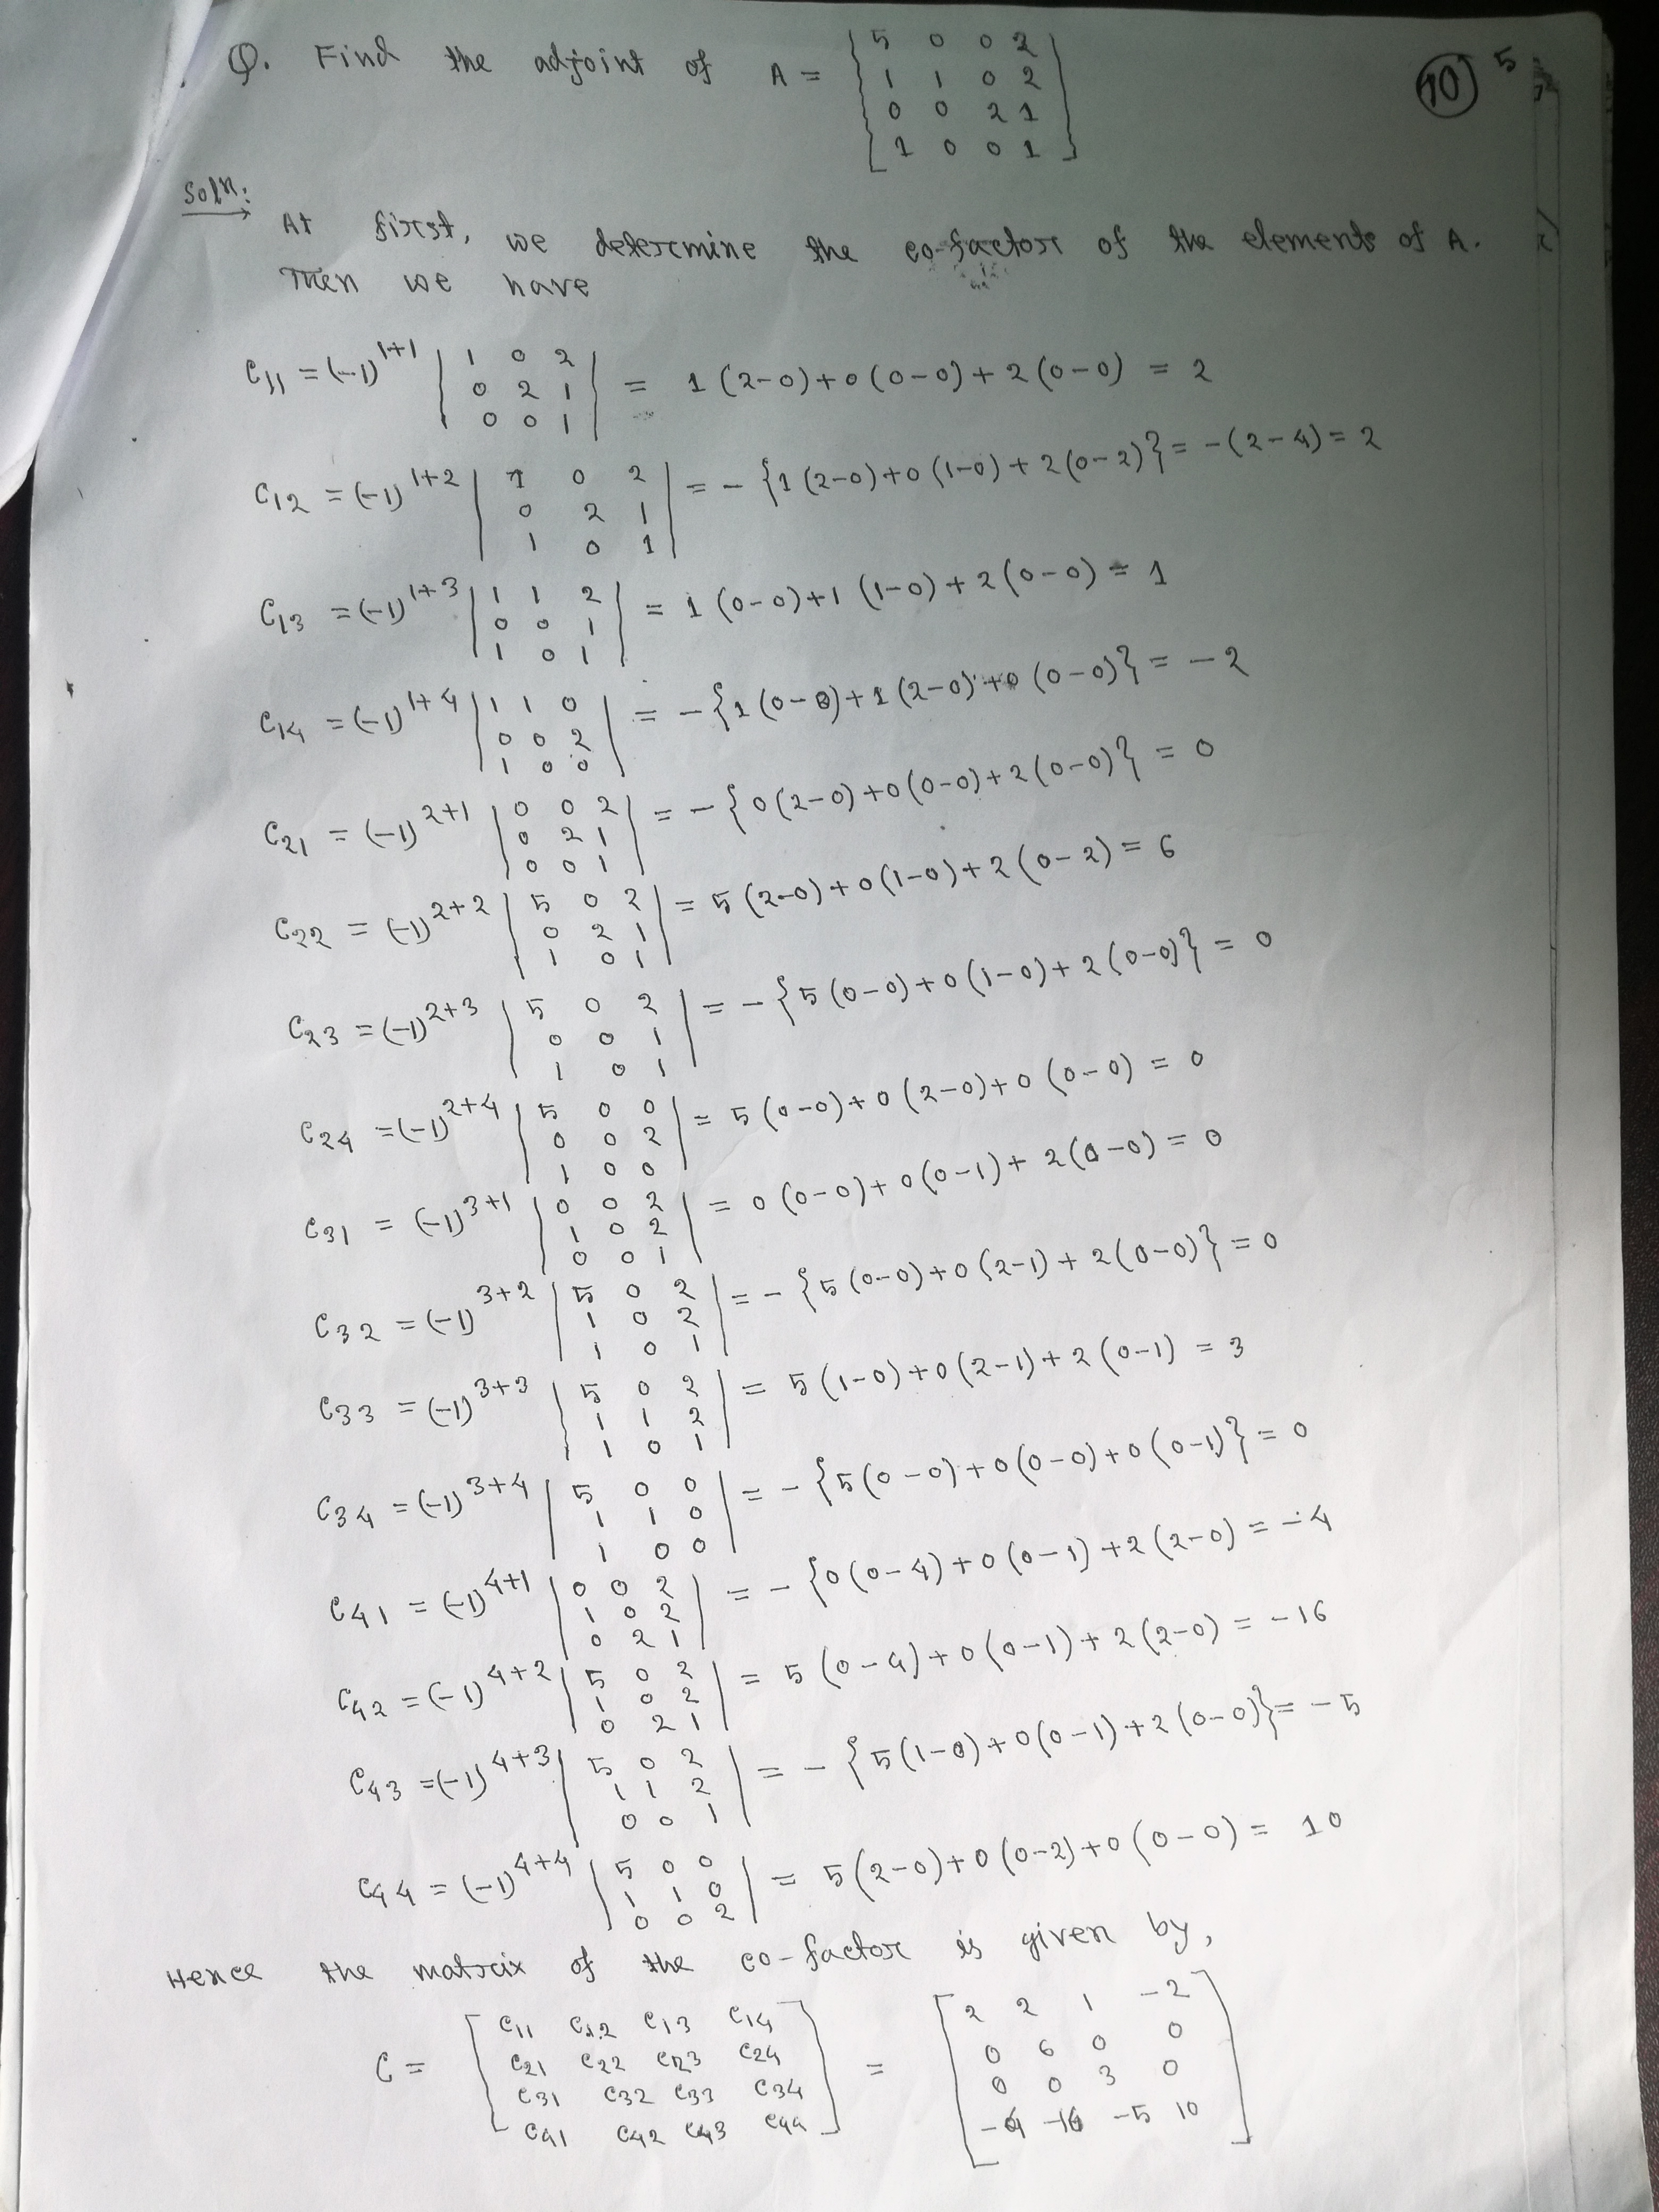 Q. Find the adjoint of A = [5 0 0 2
1 1 0 2
0 0 2 1
1 0 0 1]
10 5
Soln:
At first, we determine the co-factor of the elements of A.
Then we have
C11 = (-1)^1+1 |1 0 2
0 2 1
0 0 1| = 1(2-0)+0(0-0)+2(0-0) = 2
C12 = (-1)^1+2 |1 0 2
0 2 1
1 0 1| = -{1(2-0)+0(1-0)+2(0-2)} = -(2-4) = 2
C13 = (-1)^1+3 |1 1 2
0 0 1
1 0 1| = 1(0-0)+1(1-0)+2(0-0) = 1
C14 = (-1)^1+4 |1 1 0
0 0 2
1 0 0| = -{1(0-0)+1(2-0)+0(0-0)} = -2
C21 = (-1)^2+1 |0 0 2
0 2 1
0 0 1| = -{0(2-0)+0(0-0)+2(0-0)} = 0
C22 = (-1)^2+2 |5 0 2
0 2 1
1 0 1| = 5(2-0)+0(1-0)+2(0-2) = 6
C23 = (-1)^2+3 |5 0 2
0 0 1
1 0 1| = -{5(0-0)+0(1-0)+2(0-0)} = 0
C24 = (-1)^2+4 |5 0 0
0 0 2
1 0 0| = 5(0-0)+0(2-0)+0(0-0) = 0
C31 = (-1)^3+1 |0 0 2
1 0 2
0 0 1| = 0(0-0)+0(0-1)+2(0-0) = 0
C32 = (-1)^3+2 |5 0 2
1 0 2
1 0 1| = -{5(0-0)+0(2-1)+2(0-0)} = 0
C33 = (-1)^3+3 |5 0 2
1 1 2
1 0 1| = 5(1-0)+0(2-1)+2(0-1) = 3
C34 = (-1)^3+4 |5 0 0
1 1 0
1 0 0| = -{5(0-0)+0(0-0)+0(0-1)} = 0
C41 = (-1)^4+1 |0 0 2
1 0 2
0 2 1| = -{0(0-4)+0(0-1)+2(2-0) = -4
C42 = (-1)^4+2 |5 0 2
1 0 2
0 2 1| = 5(0-4)+0(0-1)+2(2-0) = -16
C43 = (-1)^4+3 |5 0 2
1 1 2
0 0 1| = -{5(1-0)+0(0-1)+2(0-0)} = -5
C44 = (-1)^4+4 |5 0 0
1 1 0
0 0 2| = 5(2-0)+0(0-2)+0(0-0) = 10
Hence the matrix of the co-factor is given by,
C = [C11 C12 C13 C14
C21 C22 C23 C24
C31 C32 C33 C34
C41 C42 C43 C44] = [2 2 1 -2
0 6 0 0
0 0 3 0
-4 -16 -5 10]